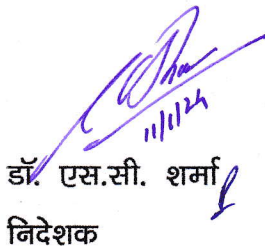 11/1/24
डॉ. एस.सी. शर्मा
निदेशक